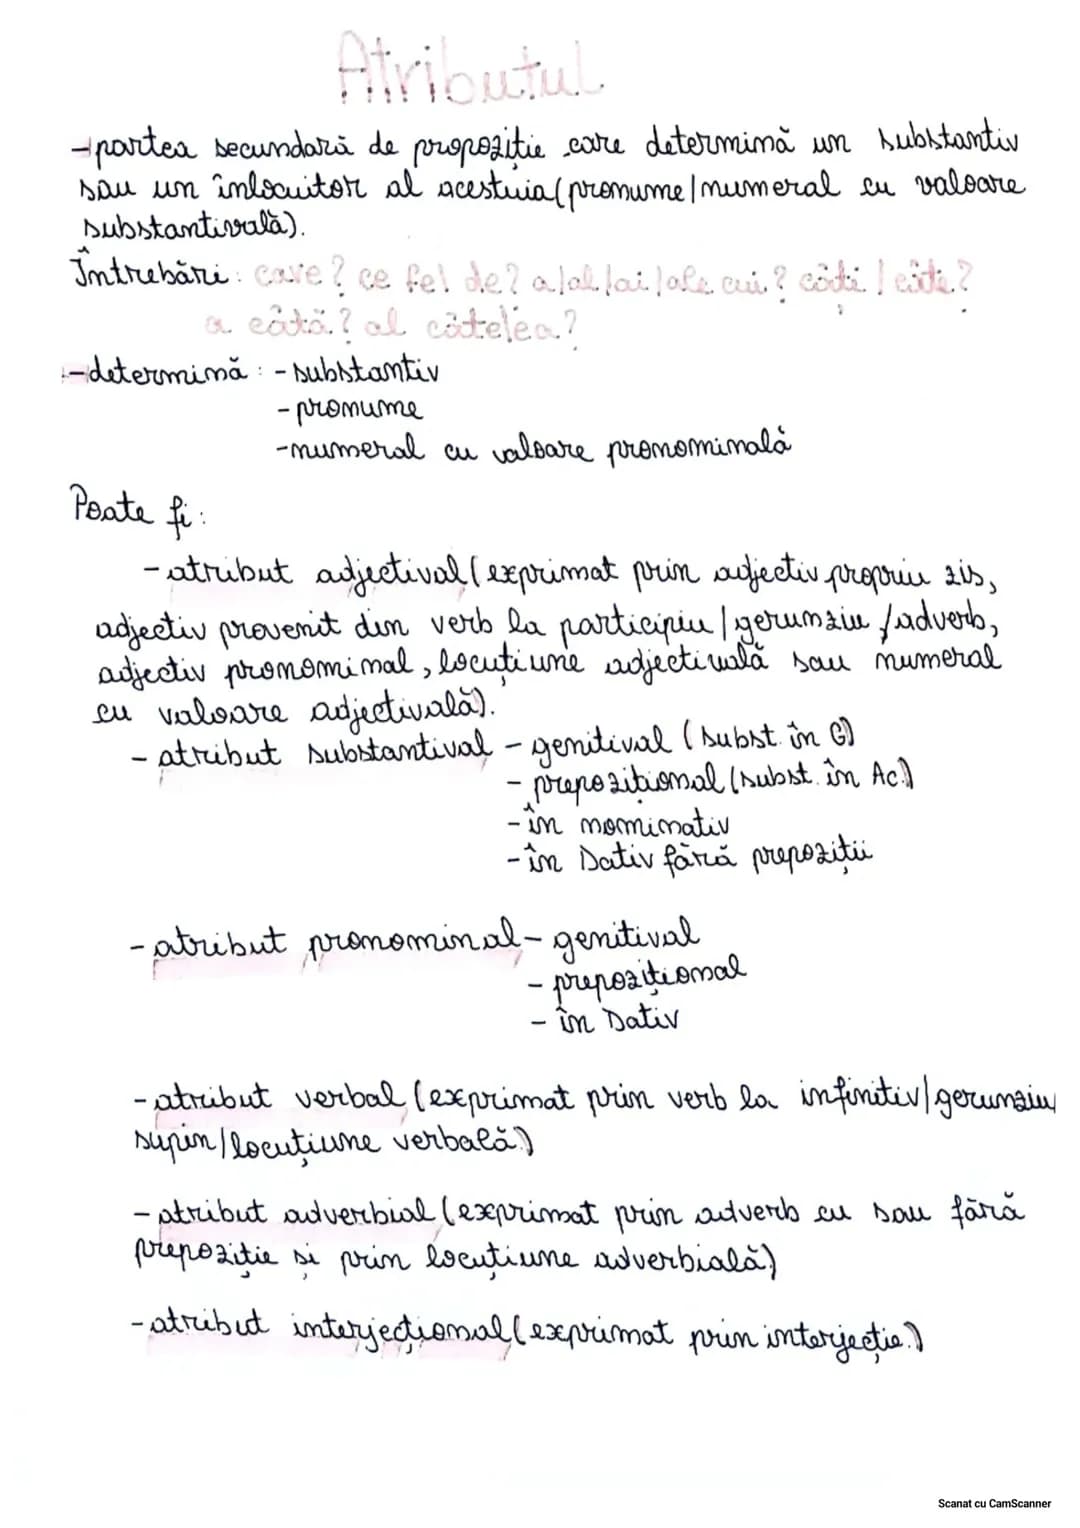 Atributul
-partea secundară de propoziție care determină un substantiv
sau un înlocuitor al acestuia(pronume/numeral cu valoare
substantivală).
Întrebări: care? ce fel de? a/al/ai/ale cui? câți/câte?
a câtă? al câtelea?
-determină: -substantiv
-pronume
-numeral cu valoare pronominală
Poate fi:
-atribut adjectival(exprimat prin adjectiv propriu zis,
adjectiv provenit din verb la participiu/gerunziu/adverb,
adjectiv pronominal, locuțiune adjectivală sau numeral
cu valoare adjectivală).
- atribut substantival - genitival (subst. în G)
- prepozițional (subst. în Ac.)
-în nominativ
-în Dativ fără prepoziții
-atribut pronominal- genitival
- prepozițional
- în Dativ
-atribut verbal (exprimat prin verb la infinitiv/gerunziu/
supin/locuțiune verbală)
-atribut adverbial (exprimat prin adverb cu sau fără
prepoziție și prin locuțiune adverbială)
-atribut interjecțional(exprimat prin interjecție.)
Scanat cu CamScanner